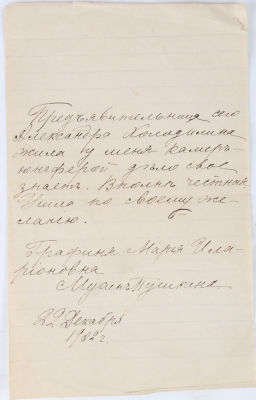 Предъявительница сего
Александра Холодилина
жила у меня камеръ-
юнгферой дѣло свое
знаетъ. Вполнѣ честная
Ушла по своему же-
ланію.
Графиня Марья Ила-
ріоновна
Мусинъ Пушкина
22 Декабря
1902 г.